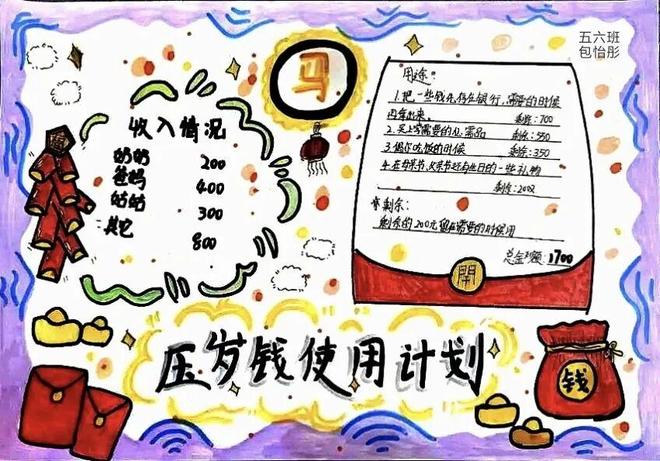 五六班
包怡彤
马
收入情况
奶奶 200
爸妈 400
姑姑 300
其它 800
用途:
1.把一些钱先存在银行,需要的时候
再拿出来 剩余:700
2.买上学需要的必需品 剩余:550
3.偶尔吃饭的时候 剩余:350
4.在母亲节、父亲节还有生日的一些礼物
剩余:200
剩余:
剩余的200元留在需要的时候用
总金额 1700
開
压岁钱使用计划
钱